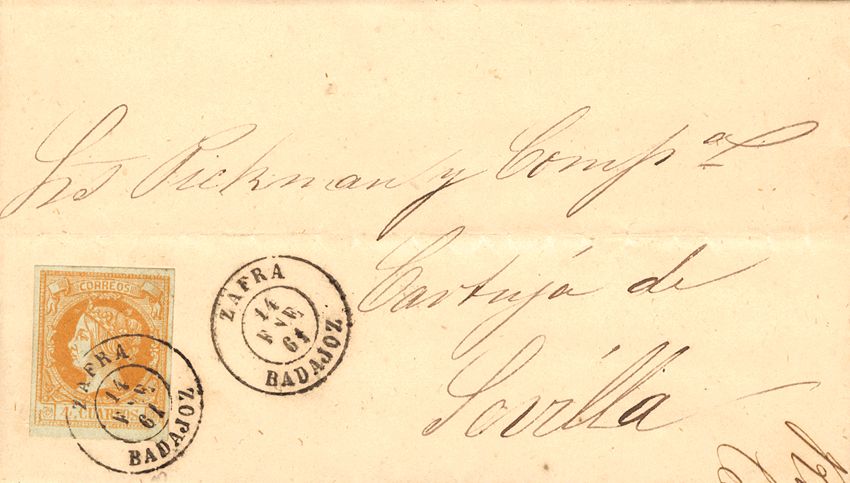 Srs Pickman y Compª
Cartuja de
Sevilla
ZAFRA
14
ENE
61
BADAJOZ
CORREOS
4 CUARTOS
ZAFRA
14
ENE
61
BADAJOZ